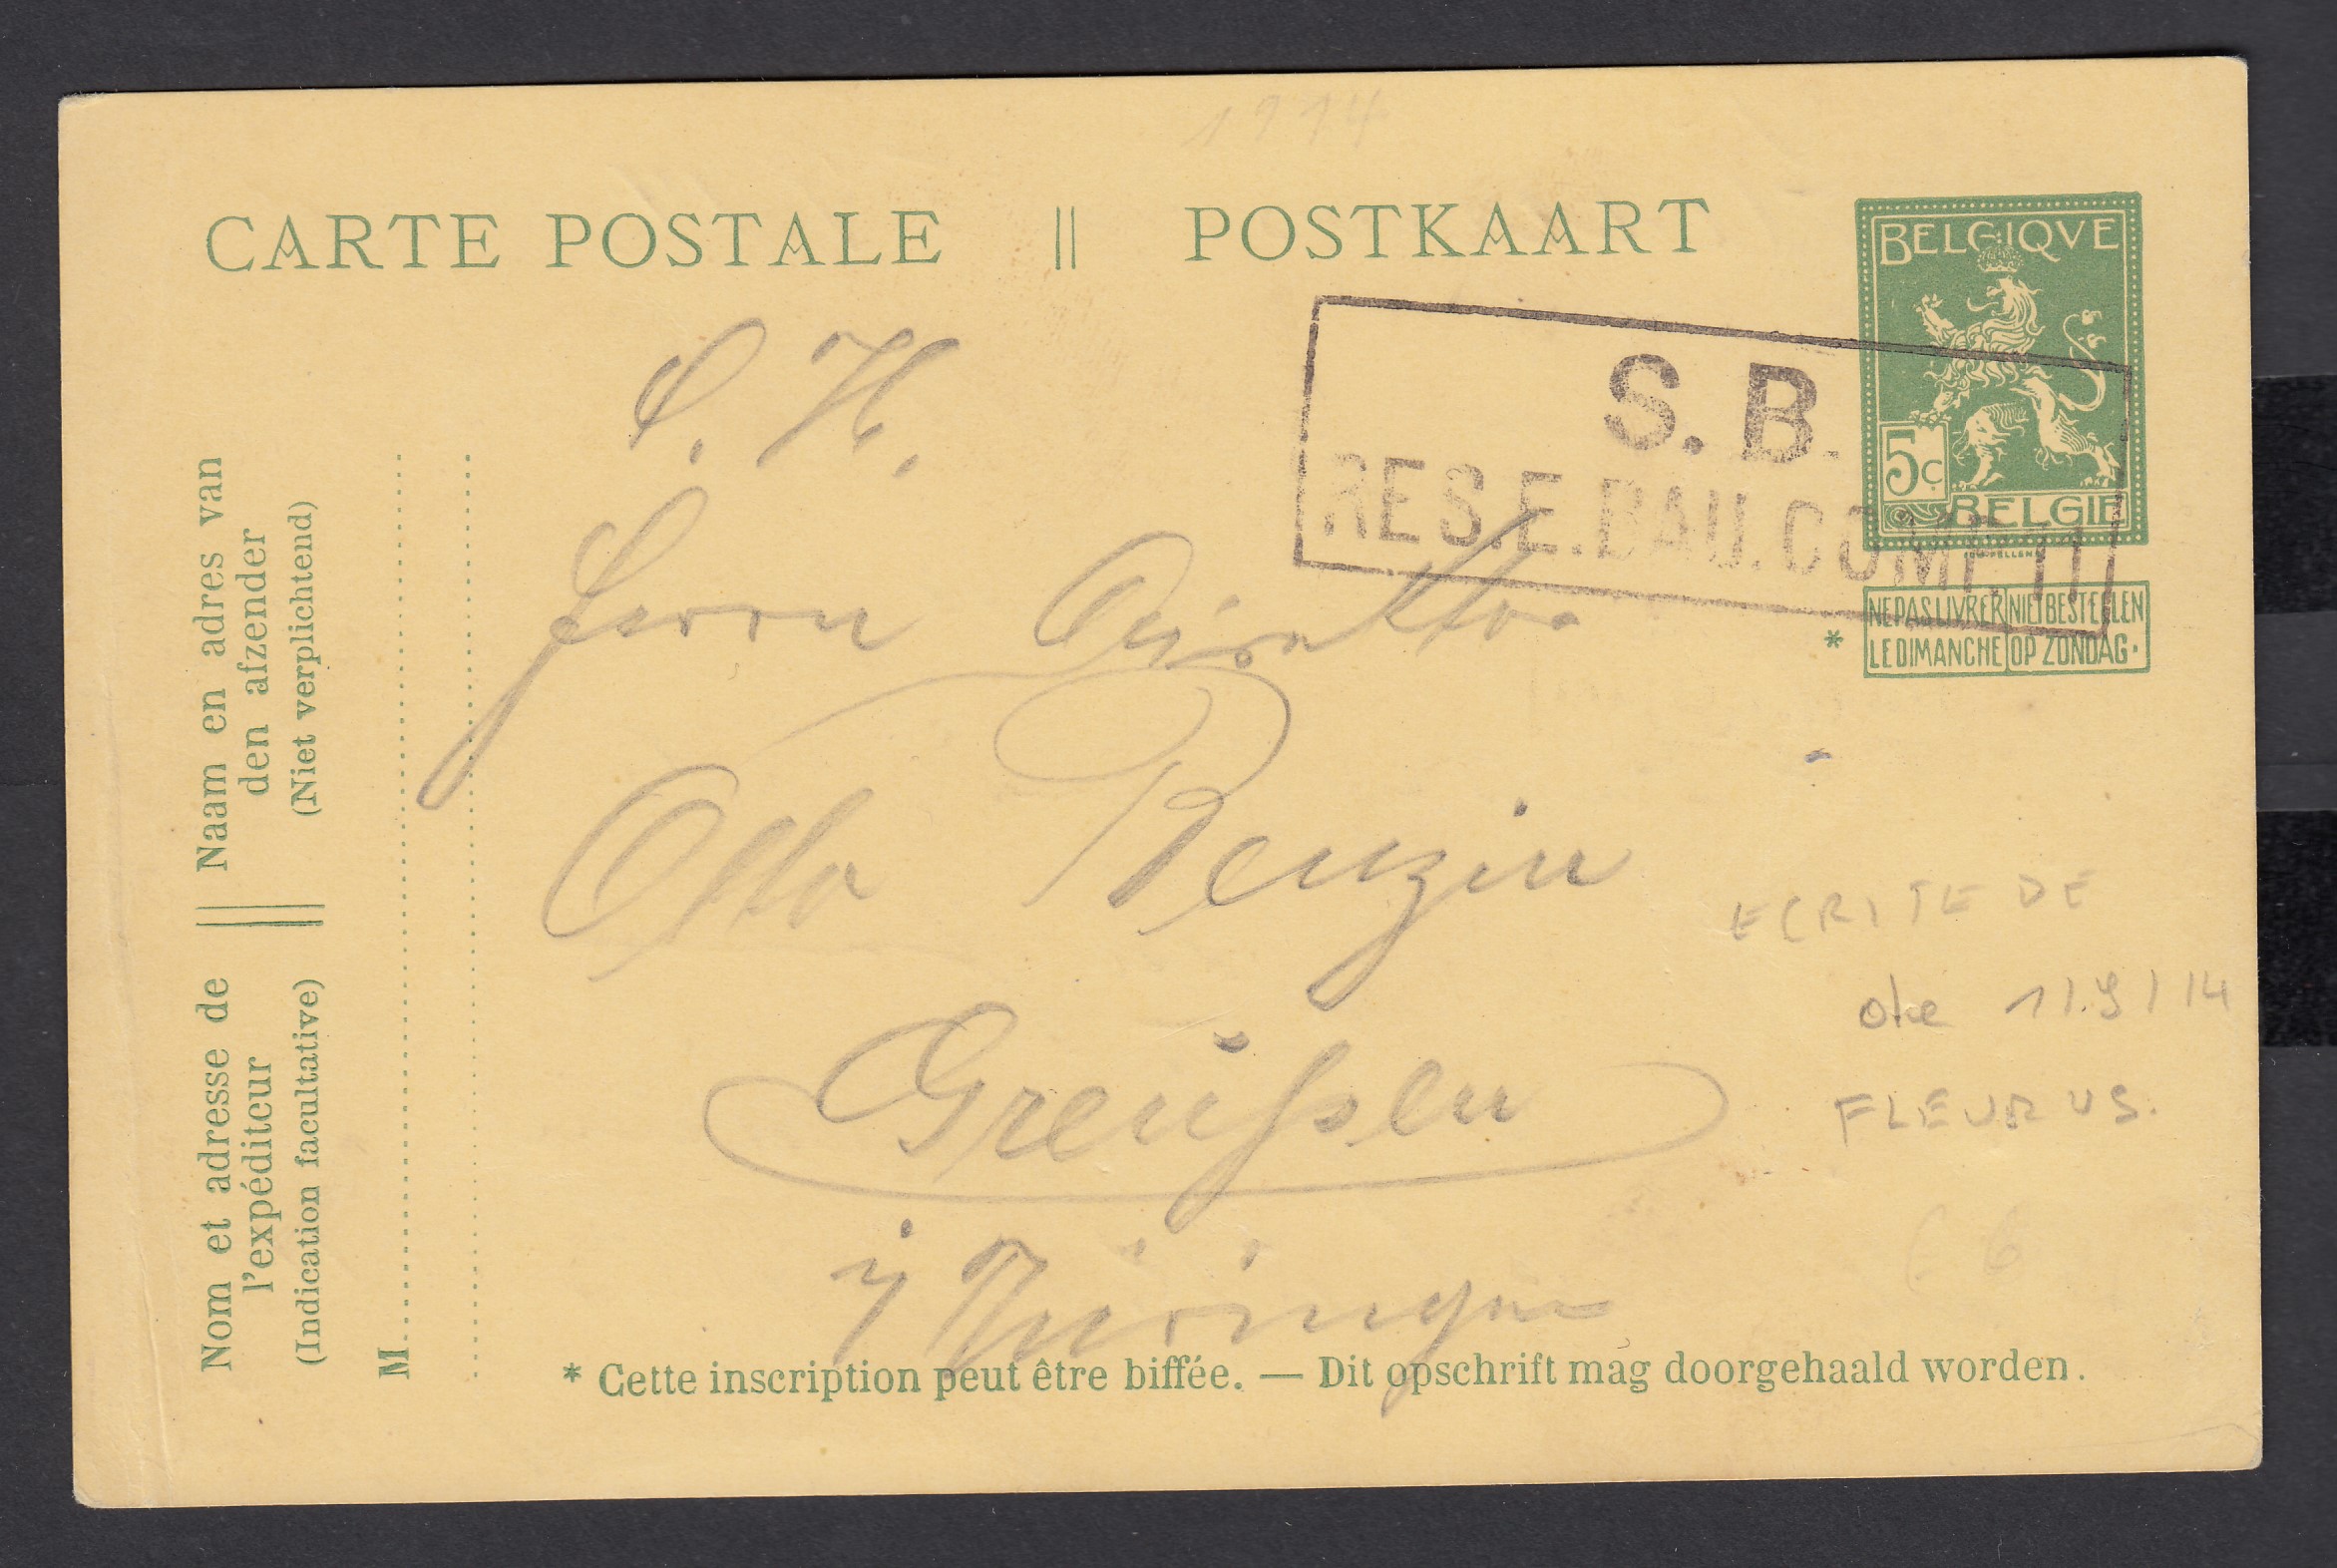 1914
CARTE POSTALE || POSTKAART
BELGIQVE
5c
BELGIE
S. B.
RES.E.BAU.COMP. III
NE PAS LIVRER LE DIMANCHE
NIET BESTELLEN OP ZONDAG.
*
S. H.
Herrn Direktor
Otto Benzin
Greußen
i/ Thüringen
ECRITE DE
FLEURUS.
Naam en adres van
den afzender
(Niet verplichtend)
Nom et adresse de
l'expéditeur
(Indication facultative)
M
* Cette inscription peut être biffée. — Dit opschrift mag doorgehaald worden.